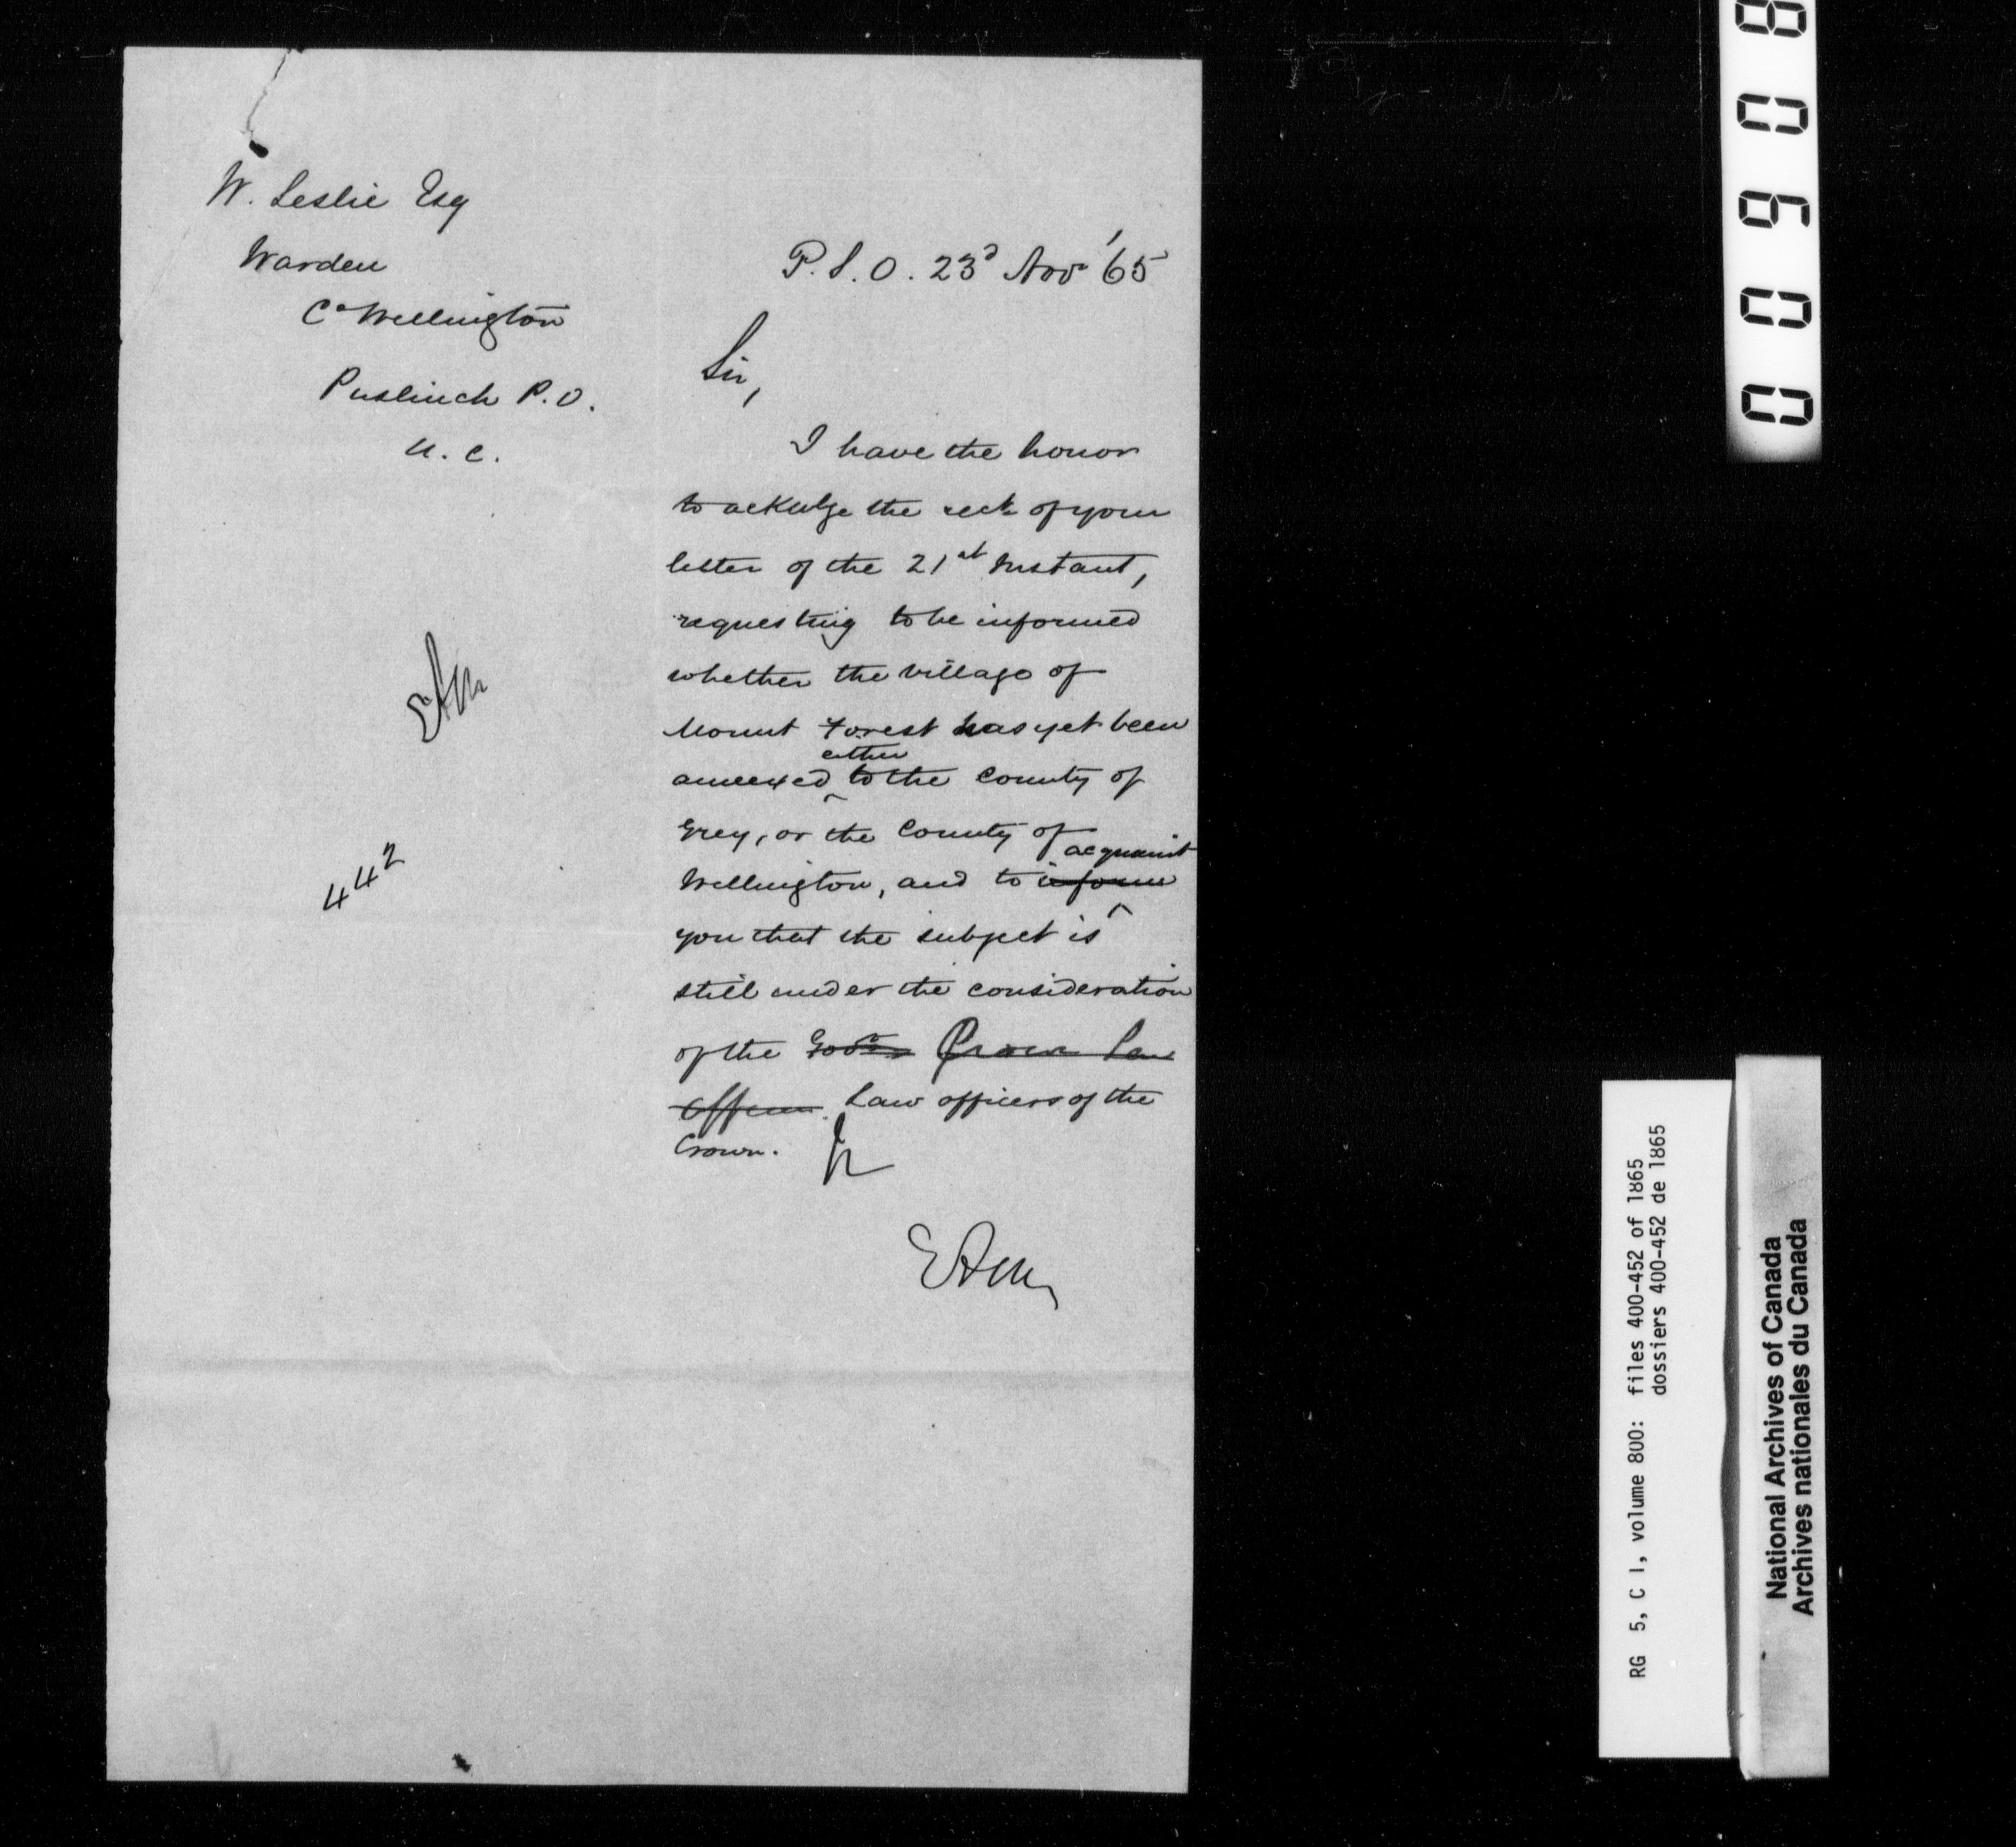 W. Leslie Esq
Warden
Co Wellington
Puslinch P.O.
U.C.
P.S.O. 23d Nov '65
Sir,
I have the honor
to ackulge the rect of your
letter of the 21st Instant,
requesting to be informed
whether the village of
Mount Forest has yet been
either
annexed to the County of
Grey, or the County of
acquaint
Wellington, and to inform
you that the subject is
still under the consideration
of the Govt Crown Law
Officers. Law officers of the
Crown.
EAM
EAM
442
0 0 9 0 8
RG 5, C 1, volume 800: files 400-452 of 1865
dossiers 400-452 de 1865
National Archives of Canada
Archives nationales du Canada